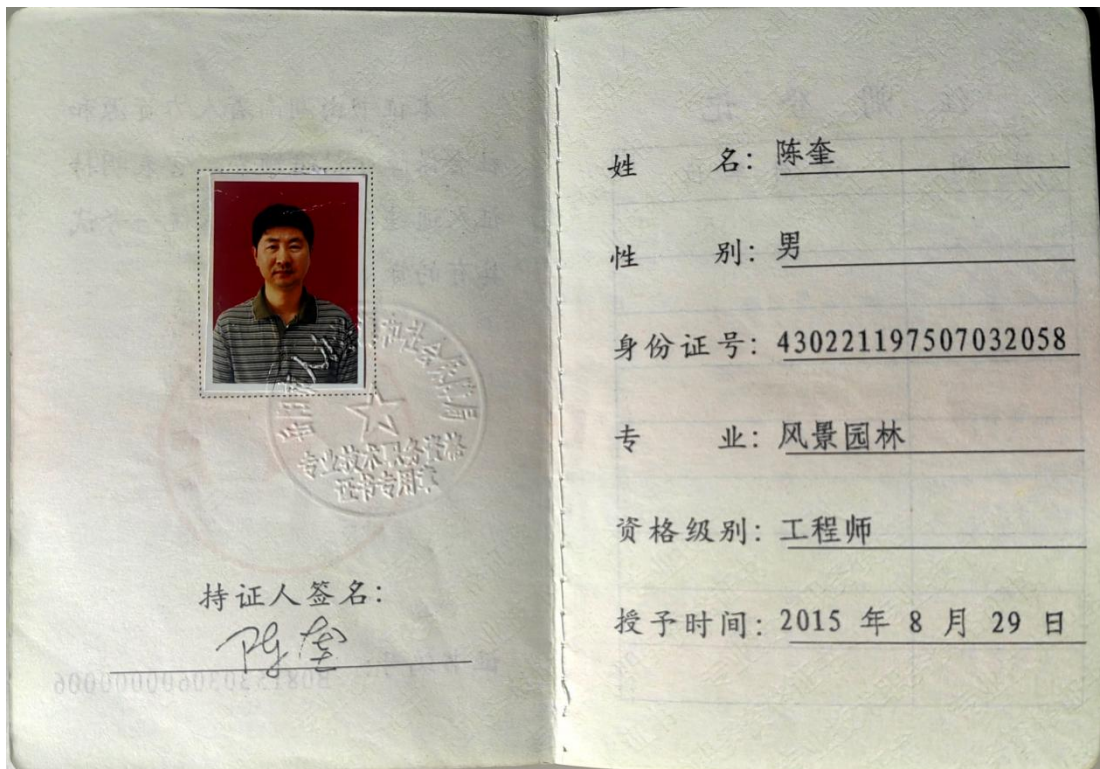 专业技术职务资格
证书专用章
持证人签名：
陈奎
姓名：陈奎
性别：男
身份证号：430221197507032058
专业：风景园林
资格级别：工程师
授予时间：2015 年 8 月 29 日